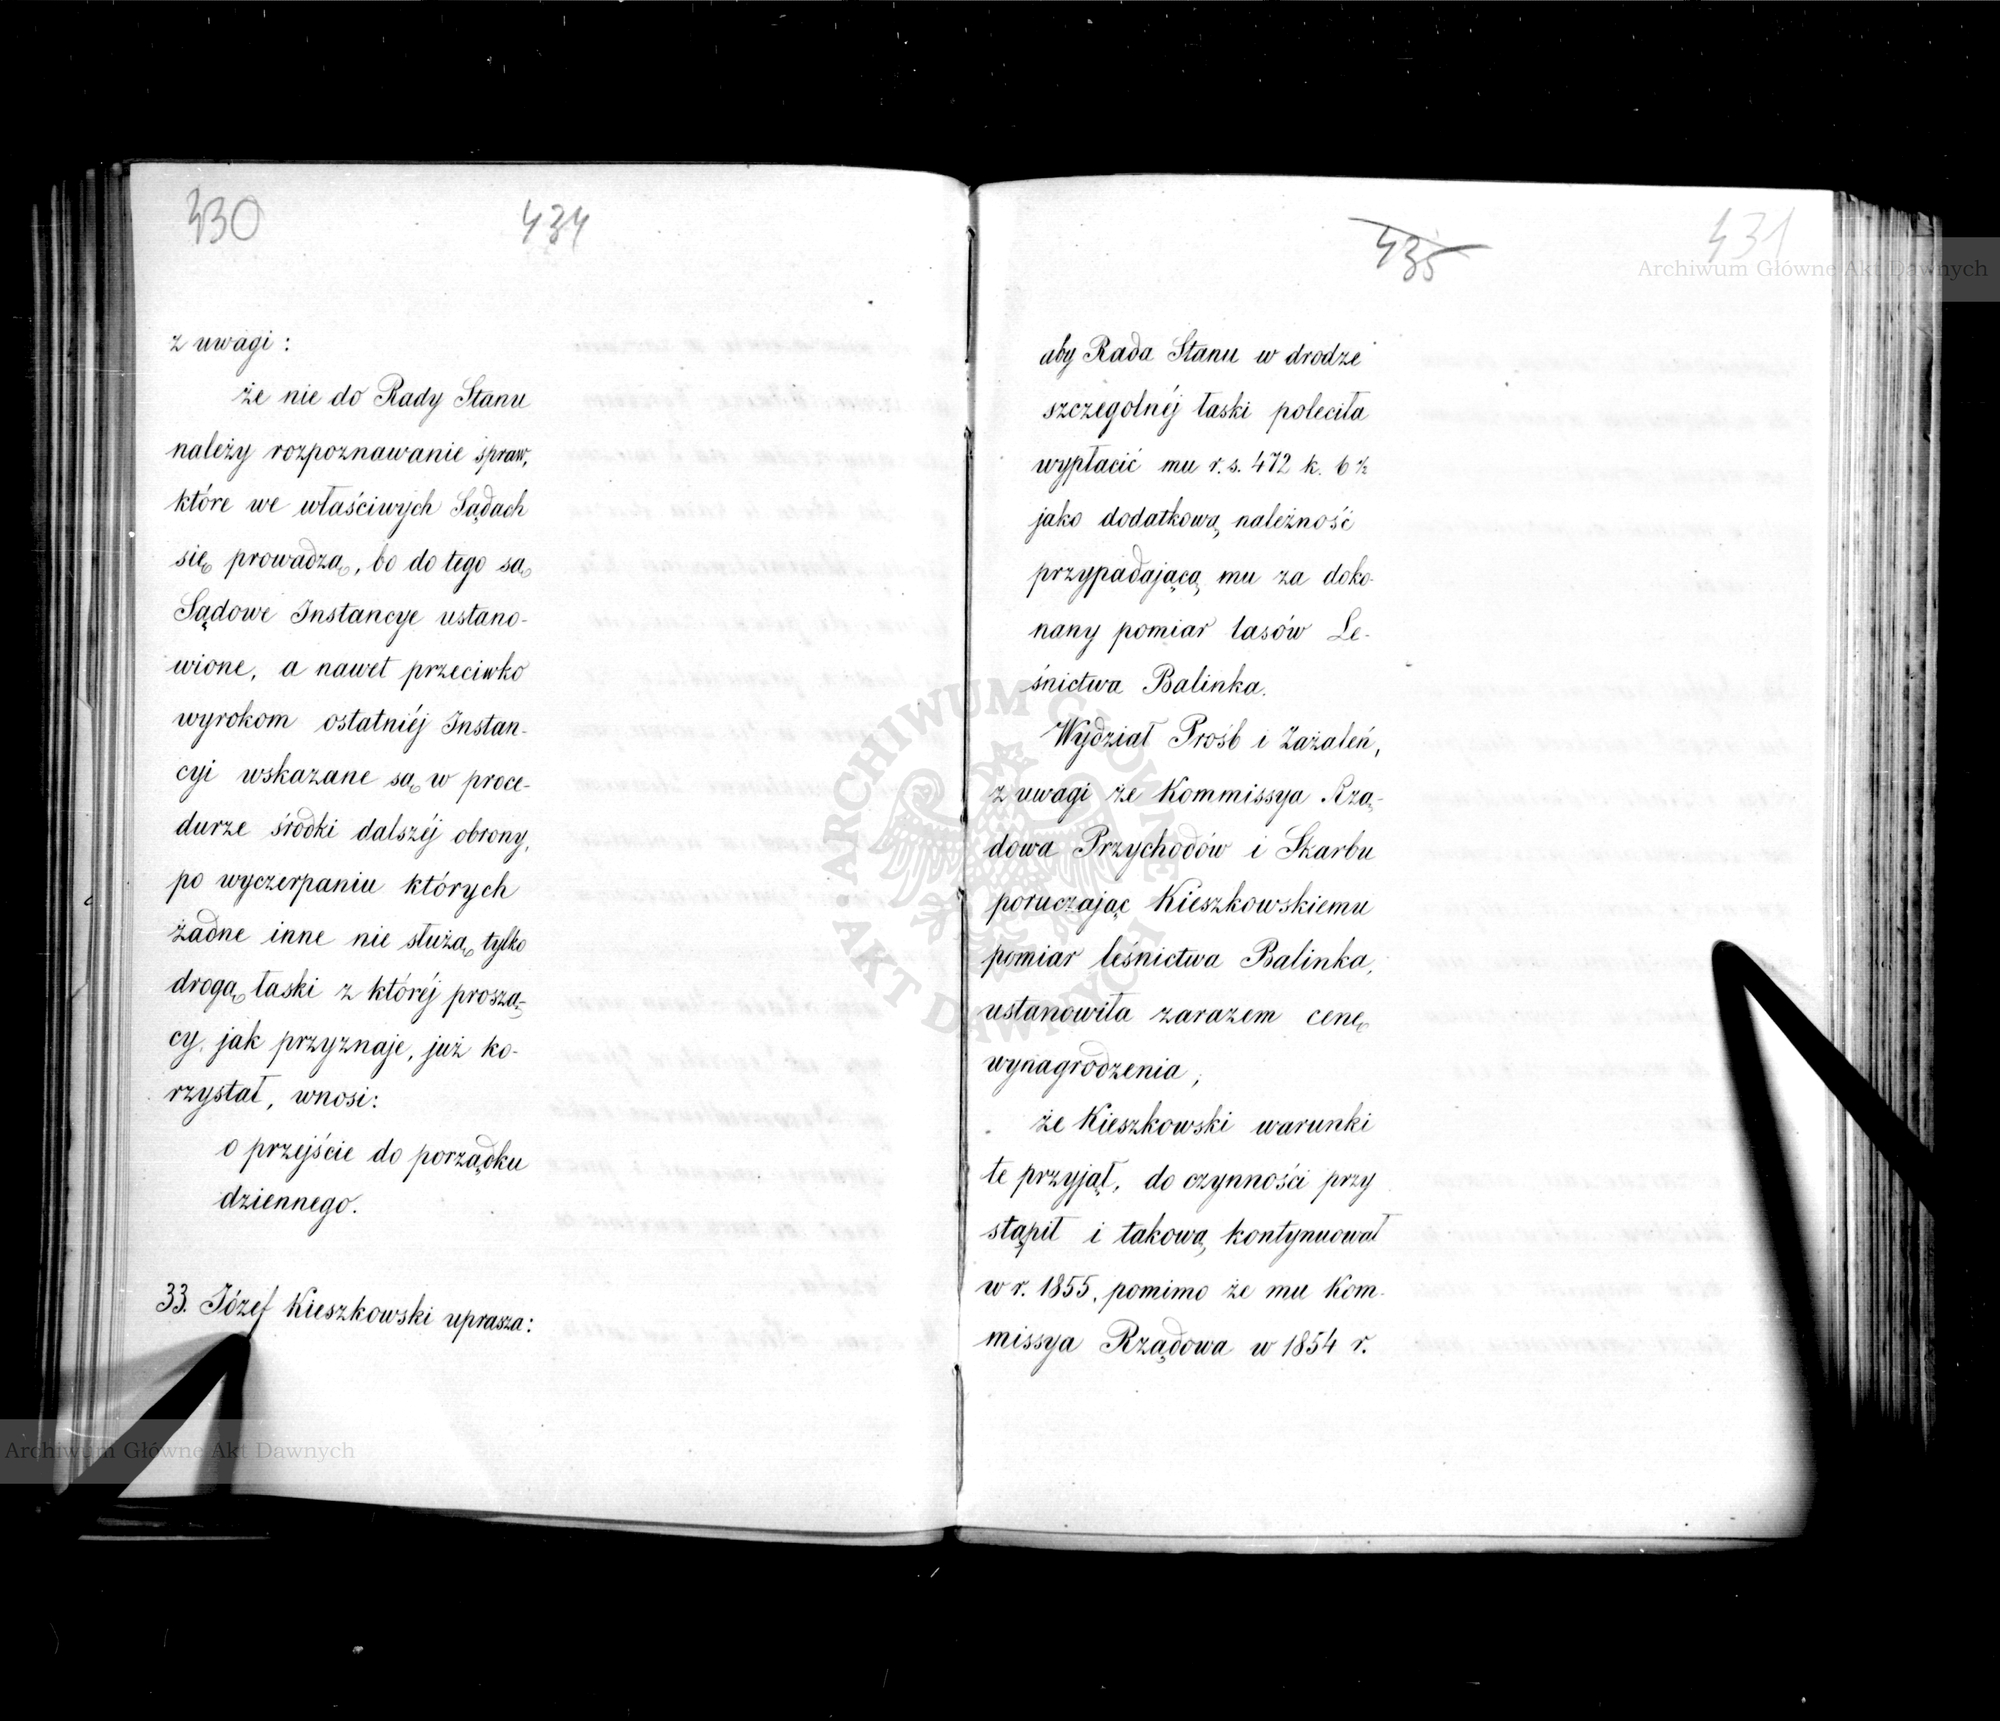 430
434
z uwagi:
że nie do Rady Stanu
należy rozpoznawanie spraw,
które we właściwych Sądach
się prowadzą, bo do tego są
Sądowe Instancye ustano-
wione, a nawet przeciwko
wyrokom ostatniéj Instan-
cyi wskazane są w proce-
durze środki dalszéj obrony,
po wyczerpaniu których
żadne inne nie służą tylko
drogą łaski z któréj proszą-
cy, jak przyznaje, już ko-
rzystał, wnosi:
o przejście do porządku
dziennego.
33. Józef Kieszkowski uprasza:
435
431
aby Rada Stanu w drodze
szczegolnéj łaski poleciła
wypłacić mu r. s. 472 k. 6½
jako dodatkową należność
przypadającą mu za doko-
nany pomiar lasów Le-
śnictwa Balinka.
Wydział Prośb i Zażaleń,
z uwagi że Kommissya Rzą-
dowa Przychodów i Skarbu
poruczając Kieszkowskiemu
pomiar leśnictwa Balinka,
ustanowiła zarazem cenę
wynagrodzenia;
że Kieszkowski warunki
te przyjął, do czynności przy
stąpił i takową kontynuował
w r. 1855, pomimo że mu Kom-
missya Rządowa w 1854 r.
Archiwum Główne Akt Dawnych
Archiwum Główne Akt Dawnych
ARCHIWUM GŁÓWNE
AKT DAWNYCH